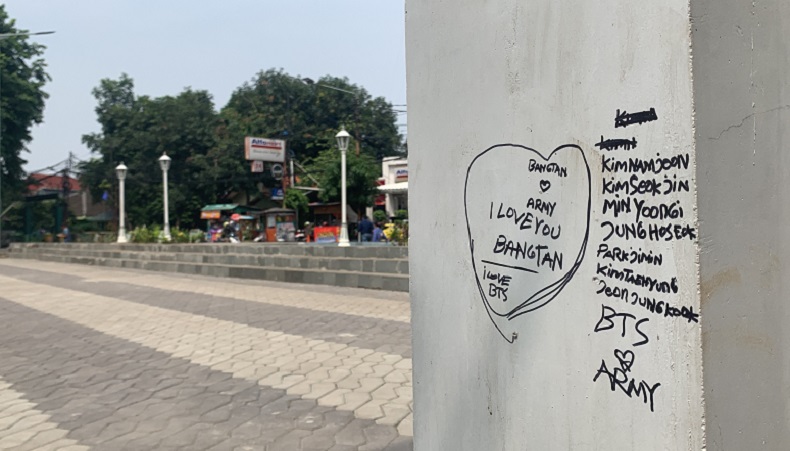 Alfamart
BANGTAN
ARMY
I LOVE YOU
BANGTAN
i LOVE
BTS
KiM NAMJOON
KiM SEOKJiN
MiN YOONGi
JUNG HOSEOK
PARKJiMiN
KiMTAEHYUNG
JEON JUNGKOOK
BTS
ARMY